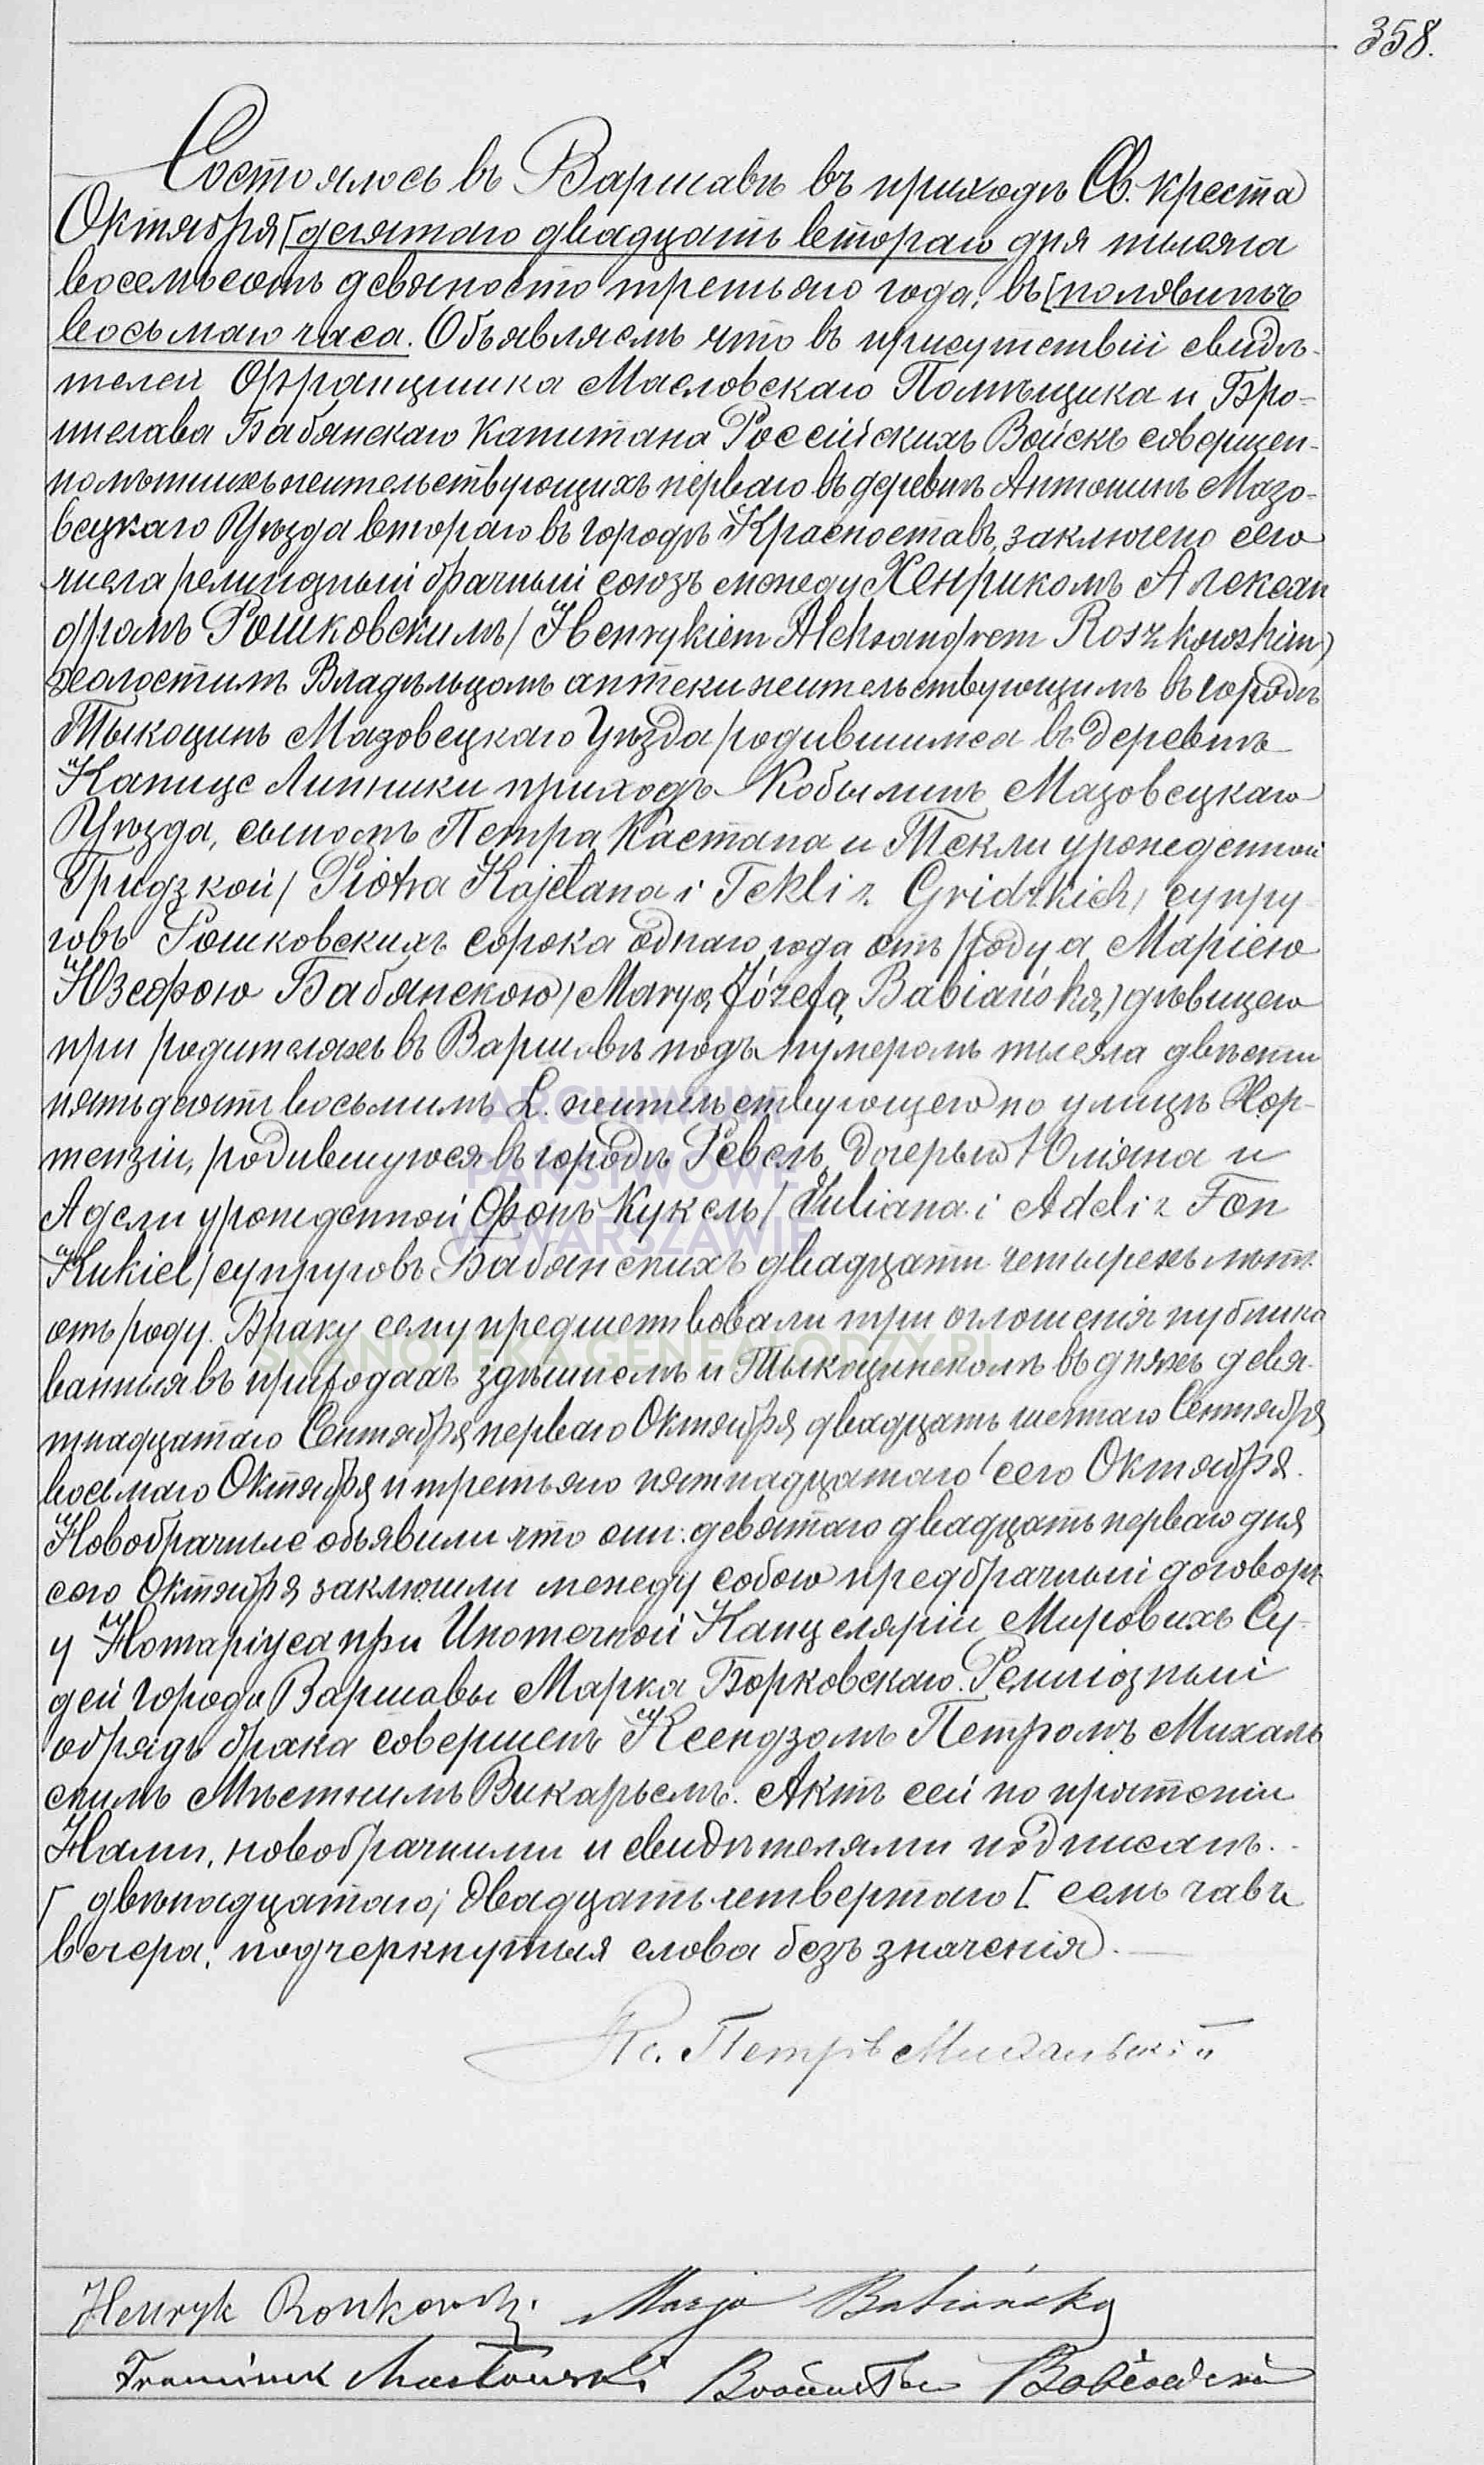 358.
Состоялось въ Варшавѣ въ приходѣ Св. Креста
Октября [десятаго двадцать втораго дня тысяча
восемьсотъ девяносто третьяго года, въ [половинѣ
восьмаго часа. Объявляемъ что въ присутствіи свидѣ-
телей Францишка Масловскаго Помѣщика и Бро-
нислава Бабянскаго Капитана Россійскихъ Войскъ совершен-
нолѣтнихъ жительствующихъ перваго въ деревнѣ Антонинѣ Мазо-
вецкаго Уѣзда втораго въ городѣ Красноставѣ, заключено сего
числа религіозный брачный союзъ между Хенрикомъ Алексан
дромъ Рошковскимъ / Henrykiem Aleksandrem Roszkowskim)
холостымъ Владѣльцомъ аптеки жительствующимъ въ городѣ
Тыкоцинѣ Мазовецкаго Уѣзда родившимся въ деревнѣ
Капице Липники приходѣ Кобылинѣ Мазовецкаго
Уѣзда, сыномъ Петра Каетана и Текли урожденной
Гридзкой / Piotra Kajetana i Tekli z Gridzkich / супру
говъ Рошковскихъ сорока однаго года отъ роду а Маріею
Юзефою Бабянскою / Maryą Józefą Babiańską) дѣвицею
при родителяхъ въ Варшавѣ подъ нумеромъ тысяча двѣсти
пятьдесятъ восьмымъ L. жительствующею по улицѣ Хор-
тензіи, родившуюся въ городѣ Ревель, дочерью Юліяна и
Адели урожденной Фонъ Кукель / Juliana i Adeli z Fon
Kukiel / супруговъ Бабянскихъ двадцати четырехъ лѣтъ
отъ роду. Браку сему предшествовали три оглошенія публико
ванныя въ приходахъ здѣшнемъ и Тыкоцинскомъ въ дняхъ девя-
тнадцатаго Сентября, перваго Октября, двадцать шестаго Сентября
восьмаго Октября и третьяго пятнадцатаго сего Октября.
Новобрачные объявили что они: девятаго двадцать перваго дня
сего Октября заключили между собою предбрачный договоръ
у Нотаріуса при Ипотечной Канцеляріи Мировихъ Су-
дей города Варшавы Марка Борковскаго. Религіозный
обрядъ брака совершенъ Ксендзомъ Петромъ Михаль
скимъ Мѣстнымъ Викарьемъ. Актъ сей по прочтеніи
Нами, новобрачными и свидѣтелями подписанъ. -
[ двѣнадцатаго; двадцать четвертаго [ семь часвъ
вечера, подчеркнутыя слова безъ значенія. —
Кс. Петръ Михальскій
Henryk Roszkowski. Marja Babiańska
Franciszek Masłowski Брониславъ Бабянскій
ARCHIWUM
PAŃSTWOWE
W WARSZAWIE
SKANOTEKA.GENEALODZY.PL